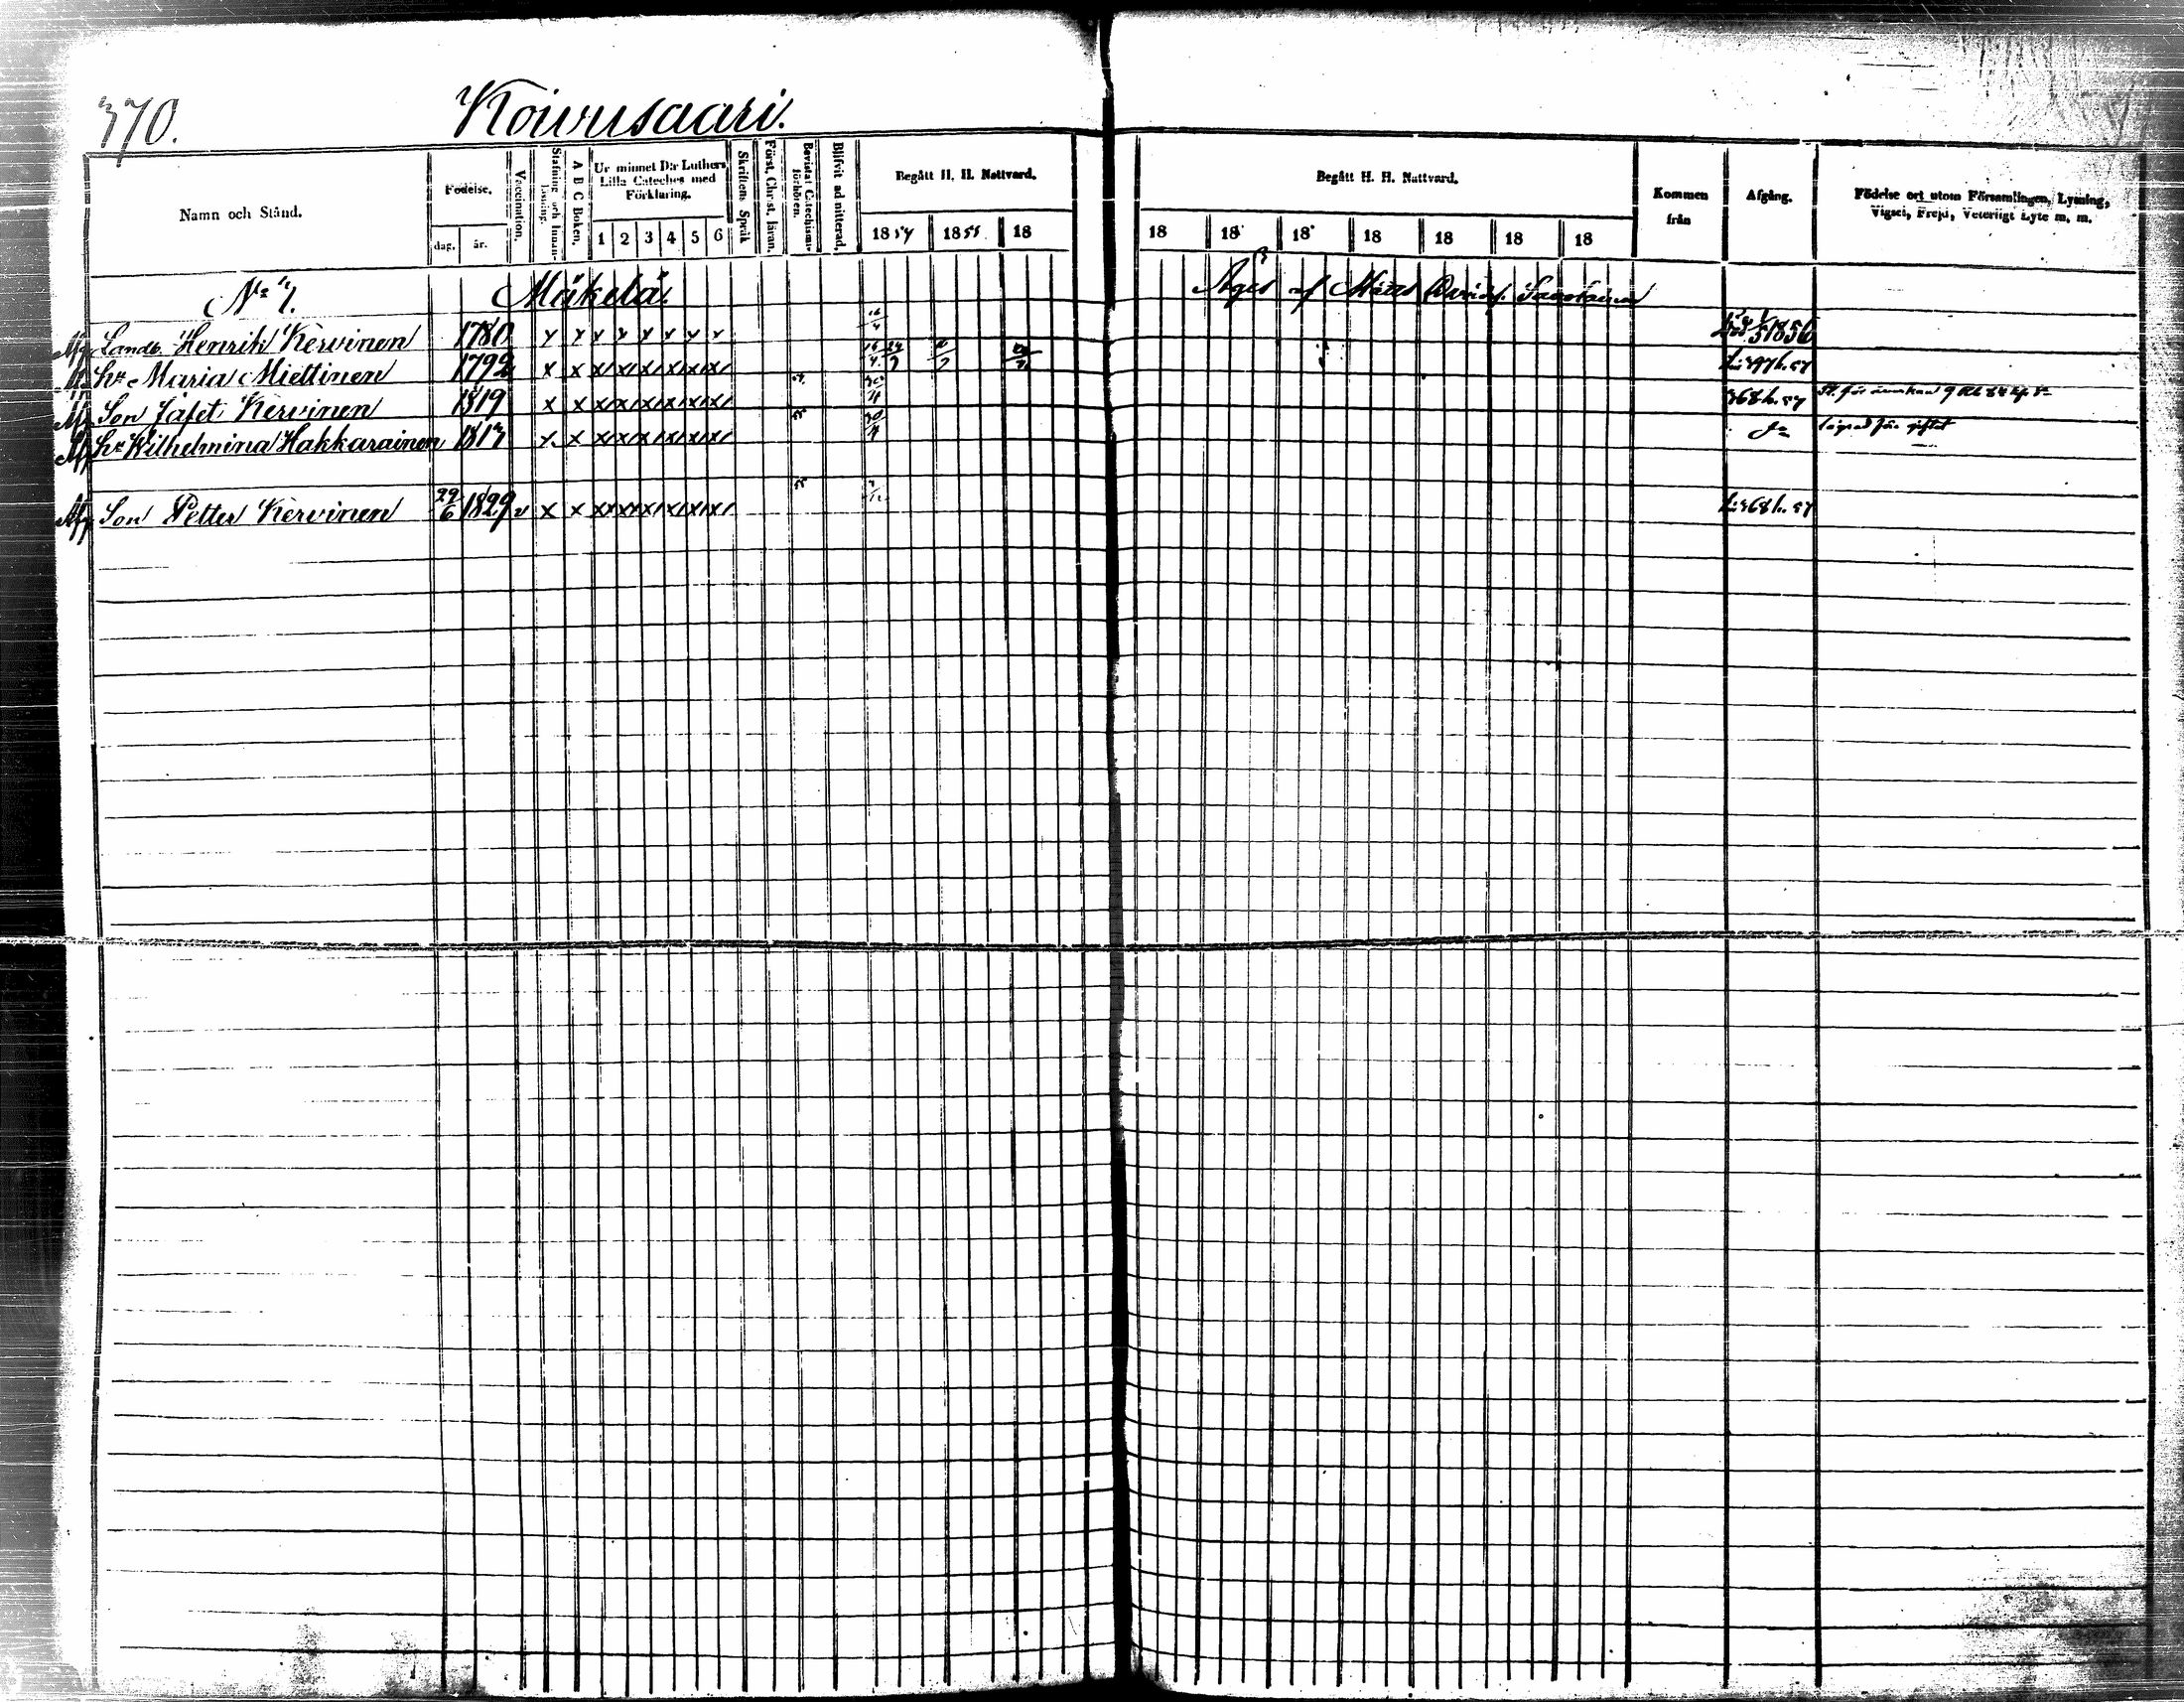 370. Koivusaari.
Namn och Stånd. Födelse. dag. år. Vaccination. Stafning och Innanläsning. A B C Boken. Ur minnet D:r Luthers Lilla Cateches med Förklaring. 1 2 3 4 5 6 Skriftens Språk Först. Christ. läran. Bevistat Catechismi-förhören. Blifvit admitterad. Begått H. H. Nattvard. 1854 1855 18
Begått H. H. Nattvard. 18 18 18 18 18 18 18 Kommen från Afgång. Födelse ort utom Församlingen, Lysning, Vigsel, Frejd, Veterligt Lyte m. m.
N:o 7. Mäkelä. Äges af Mats Davids. Savolainen
Landb. Henrik Kervinen 1780 x x x x x x x x 16/4 Död 1/5 1856
Hu Maria Miettinen 1792 x x x x x x x x 16/4
Son Jafet Kervinen 1819 x x x x x x x x 30/4 368 h. 57
Hu Wilhelmina Hakkarainen 1817 x x x x x x x x 55 30/4
Afg Son Petter Kervinen 29/6 1829 v x x x x x x x x 55 368 h. 57